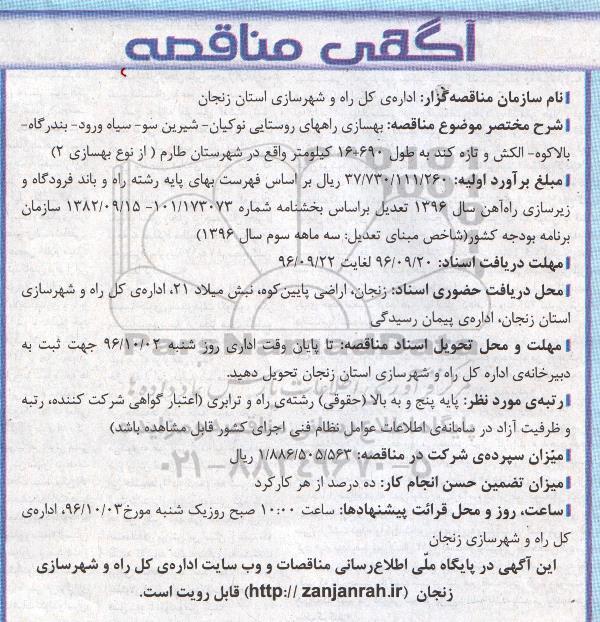 آگهی مناقصه
نام سازمان مناقصه‌گزار: اداره‌ی کل راه و شهرسازی استان زنجان
شرح مختصر موضوع مناقصه: بهسازی راههای روستایی نوکیان- شیرین سو- سیاه ورود- بندرگاه-
بالاکوه- الکش و تازه کند به طول ۱۶+۶۹۰ کیلومتر واقع در شهرستان طارم ( از نوع بهسازی ۲)
مبلغ برآورد اولیه: ۳۷/۷۳۰/۱۱۱/۲۶۰ ریال بر اساس فهرست بهای پایه رشته راه و باند فرودگاه و
زیرسازی راه‌آهن سال ۱۳۹۶ تعدیل براساس بخشنامه شماره ۱۰۱/۱۷۳۰۷۳- ۱۳۸۲/۰۹/۱۵ سازمان
برنامه بودجه کشور(شاخص مبنای تعدیل: سه ماهه سوم سال ۱۳۹۶)
مهلت دریافت اسناد: ۹۶/۰۹/۲۰ لغایت ۹۶/۰۹/۲۲
محل دریافت حضوری اسناد: زنجان، اراضی پایین‌کوه، نبش میلاد ۲۱، اداره‌ی کل راه و شهرسازی
استان زنجان، اداره‌ی پیمان رسیدگی
مهلت و محل تحویل اسناد مناقصه: تا پایان وقت اداری روز شنبه ۹۶/۱۰/۰۲ جهت ثبت به
دبیرخانه‌ی اداره کل راه و شهرسازی استان زنجان تحویل دهید.
رتبه‌ی مورد نظر: پایه پنج و به بالا (حقوقی) رشته‌ی راه و ترابری (اعتبار گواهی شرکت کننده، رتبه
و ظرفیت آزاد در سامانه‌ی اطلاعات عوامل نظام فنی اجرای کشور قابل مشاهده باشد)
میزان سپرده‌ی شرکت در مناقصه: ۱/۸۸۶/۵۰۵/۵۶۳ ریال
میزان تضمین حسن انجام کار: ده درصد از هر کارکرد
ساعت، روز و محل قرائت پیشنهادها: ساعت ۱۰:۰۰ صبح روزیک شنبه مورخ۹۶/۱۰/۰۳، اداره‌ی
کل راه و شهرسازی زنجان
این آگهی در پایگاه ملّی اطلاع‌رسانی مناقصات و وب سایت اداره‌ی کل راه و شهرسازی
زنجان (http:// zanjanrah.ir) قابل رویت است.
ParsNamadData
۰۲۱-۸۸۳۴۹۶۷۰-۵